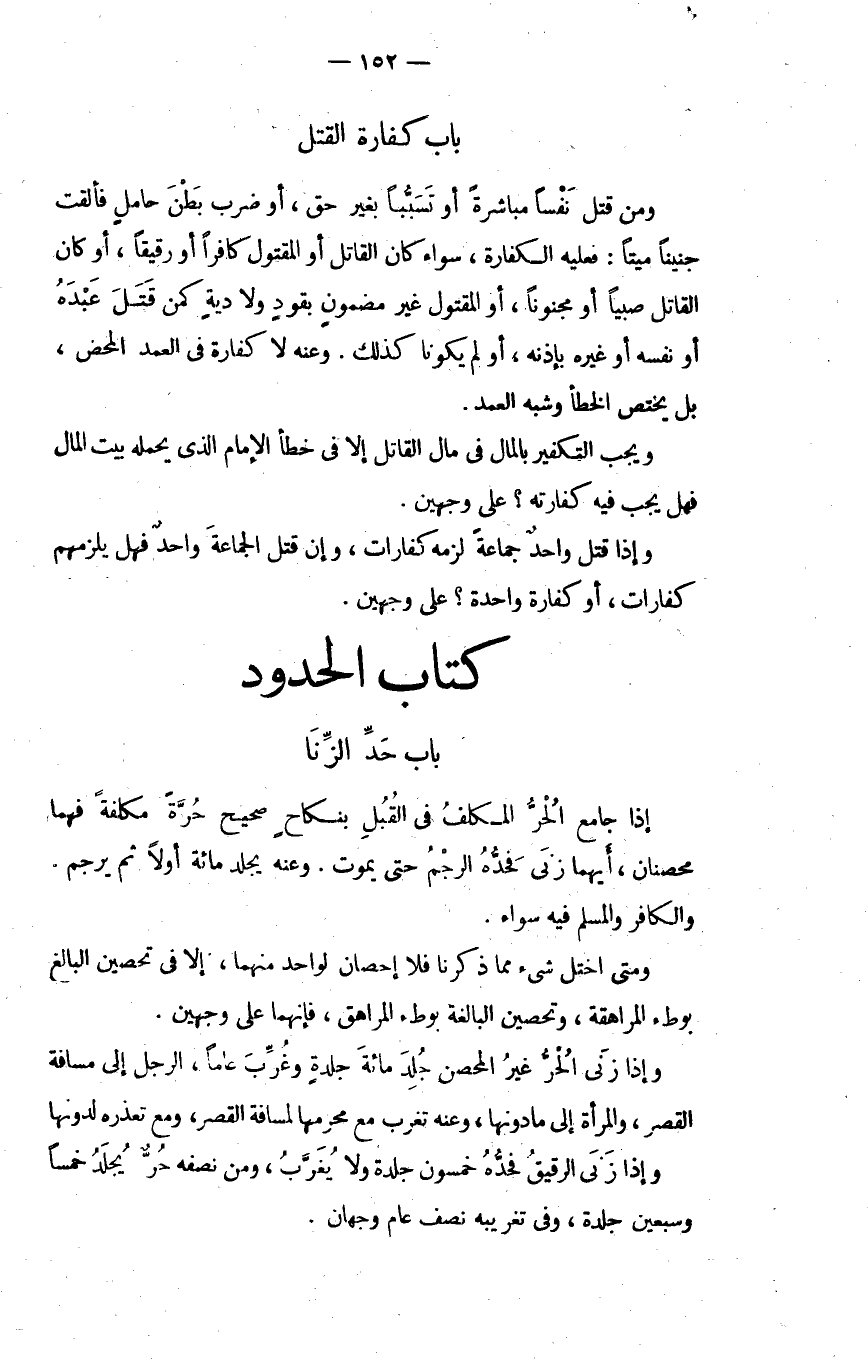 — ١٥٢ —
باب كفارة القتل
ومن قتل نَفْساً مباشرةً أو تَسَبُّباً بغير حق ، أو ضرب بَطْنَ حاملٍ فألقت
جنيناً ميتاً : فعليه الكفارة ، سواء كان القاتل أو المقتول كافراً أو رقيقاً ، أو كان
القاتل صبياً أو مجنوناً ، أو المقتول غير مضمونٍ بقودٍ ولا ديةٍ كمن قَتَلَ عَبْدَهُ
أو نفسه أو غيره بإذنه ، أو لم يكونا كذلك . وعنه لا كفارة فى العمد المحض ،
بل يختص الخطأ وشبه العمد .
ويجب التكفير بالمال فى مال القاتل إلا فى خطأ الإمام الذى يحمله بيت المال
فهل يجب فيه كفارته ؟ على وجهين .
وإذا قتل واحدٌ جماعةً لزمه كفارات ، وإن قتل الجماعةَ واحدٌ فهل يلزمهم
كفارات ، أو كفارة واحدة ؟ على وجهين .
كتاب الحدود
باب حَدِّ الزِّنَا
إذا جامع الْحُرُّ المكلفُ فى القُبُلِ بنكاحٍ صحيح حُرَّةً مكلفةً فهما
محصنان ، أَيهما زنَى فَحَدُّهُ الرجْمُ حتى يموت . وعنه يجلد مائة أولاً ثم يرجم .
والكافر والمسلم فيه سواء .
ومتى اختل شىء مما ذكرنا فلا إحصان لواحد منهما ، إلا فى تحصين البالغ
بوطء المراهقة ، وتحصين البالغة بوطء المراهق ، فإنهما على وجهين .
وإذا زنَى الْحُرُّ غيرُ المحصن جُلِدَ مائةَ جلدةٍ وغُرِّبَ عاماً ، الرجل إلى مسافة
القصر ، والمرأة إلى مادونها ، وعنه تغرب مع محرمها لمسافة القصر ، ومع تعذره لدونها
وإذا زَنَى الرقيقُ فحدُّهُ خمسون جلدة ولا يُغَرَّبُ ، ومن نصفه حُرٌّ يُجلَدُ خمساً
وسبعين جلدة ، وفى تغريبه نصف عام وجهان .